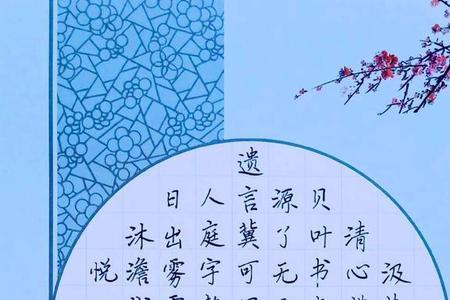 汲
清心
贝叶书
源了无
遗言冀可
人庭宇
日出雾
沐澹
悦